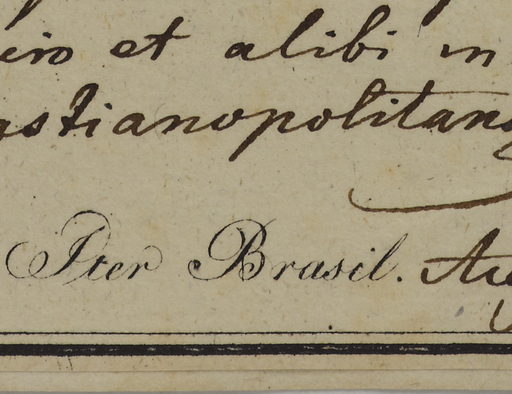 iro et alibi in
astianopolitana
Iter Brasil. Au